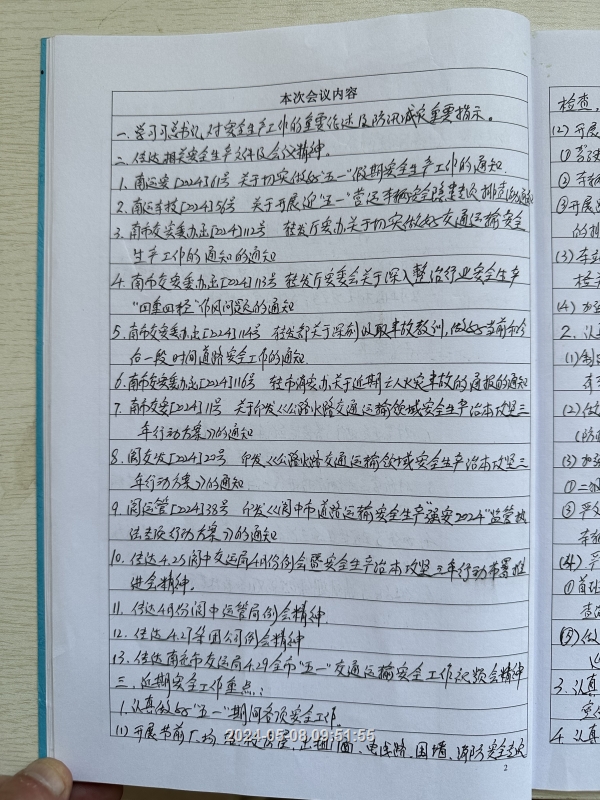 本次会议内容
一. 学习习总书记对安全生产工作的重要论述及防汛减灾重要指示。
二. 传达相关安全生产文件及会议精神。
1. 南运安[2024]61号 关于切实做好"五一"假期安全生产工作的通知
2. 南运车技[2024]56号 关于开展迎"五一"营运车辆安全隐患大排查的通知
3. 南市交安委办函[2024]112号 转发厅安办关于切实做好交通运输安全
生产工作的通知的通知
4. 南市交安委办函[2024]113号 转发厅安委会关于深入整治行业安全生产
"四重四轻"作风问题的通知
5. 南市交安委办函[2024]114号 转发部关于深刻吸取事故教训,做好当前和今
后一段时间道路安全工作的通知
6. 南市交安委办函[2024]116号 转市消安办关于近期亡人火灾事故的通报的通知
7. 南市交安[2024]11号 关于印发《公路水路交通运输领域安全生产治本攻坚三
年行动方案》的通知
8. 阆交发[2024]22号 印发《公路水路交通运输领域安全生产治本攻坚三
年行动方案》的通知
9. 阆运管[2024]38号 印发《阆中市道路运输安全生产"强安2024"监管执
法专项行动方案》的通知
10. 传达4.25阆中交运局4月份例会暨安全生产治本攻坚三年行动部署推
进会精神.
11. 传达4月份阆中运管局例会精神.
12. 传达4.27集团公司例会精神
13. 传达南充市交运局4.29全市"五一"交通运输安全工作视频会精神
三. 近期安全工作重点:
1. 认真做好"五一"期间各项安全工作。
(1) 开展节前广场、 出租门面、电线路、围墙、消防安全
2024-05-08 09:51:55
2
检查,
(2) 开展
①
② 车辆
③ 开展
的排
(3) 车站
检查
(4) 加强
2. 认真
(1) 制
(2) 做
(防
(3) 加强
① 二
②
车辆
(4)
① 首
查
(5) 做
3. 认真
4. 认真